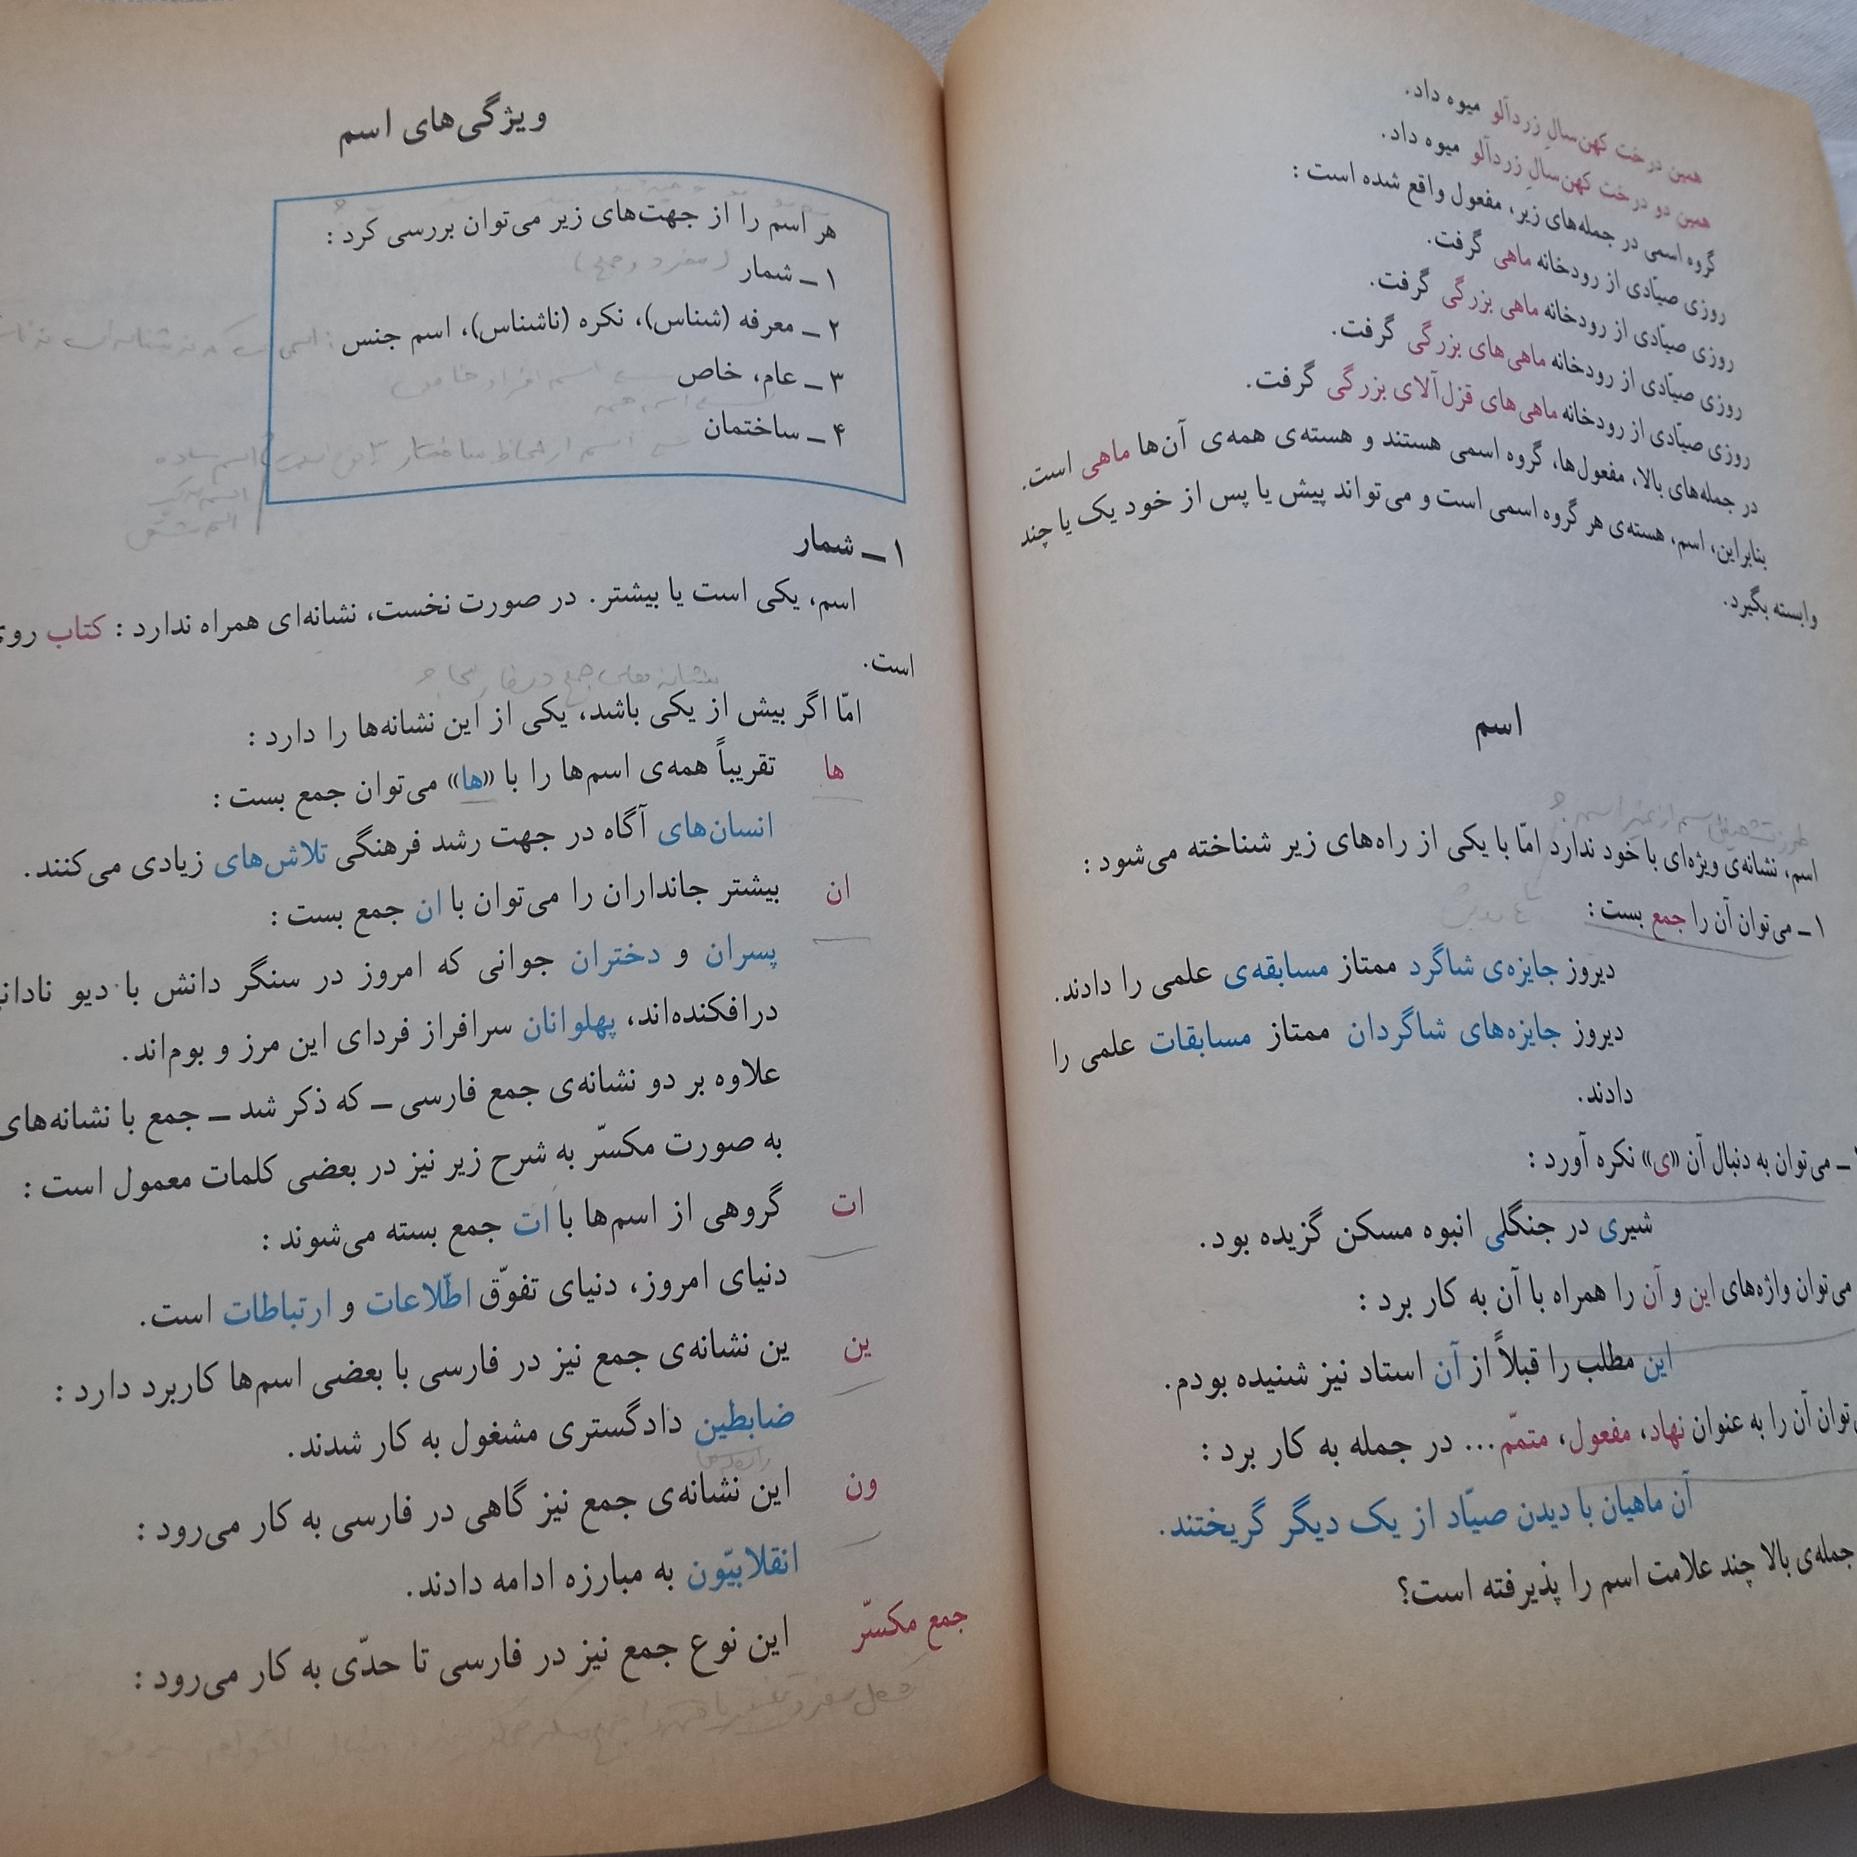 همین درخت کهن‌سالِ زردآلو میوه داد.
همین دو درخت کهن‌سالِ زردآلو میوه داد.
گروه اسمی در جمله‌های زیر، مفعول واقع شده است :
روزی صیّادی از رودخانه ماهی گرفت.
روزی صیّادی از رودخانه ماهی بزرگی گرفت.
روزی صیّادی از رودخانه ماهی‌های بزرگی گرفت.
روزی صیّادی از رودخانه ماهی‌های قزل‌آلای بزرگی گرفت.
در جمله‌های بالا، مفعول‌ها، گروه اسمی هستند و هسته‌ی همه‌ی آن‌ها ماهی است.
بنابراین، اسم، هسته‌ی هر گروه اسمی است و می‌تواند پیش یا پس از خود یک یا چند
وابسته بگیرد.
اسم
اسم، نشانه‌ی ویژه‌ای با خود ندارد امّا با یکی از راه‌های زیر شناخته می‌شود :
۱ــ می‌توان آن را جمع بست :
دیروز جایزه‌ی شاگرد ممتاز مسابقه‌ی علمی را دادند.
دیروز جایزه‌های شاگردان ممتاز مسابقات علمی را
دادند.
ــ می‌توان به دنبال آن «ی» نکره آورد :
شیری در جنگلی انبوه مسکن گزیده بود.
می‌توان واژه‌های این و آن را همراه با آن به کار برد :
این مطلب را قبلاً از آن استاد نیز شنیده بودم.
توان آن را به عنوان نهاد، مفعول، متممّ... در جمله به کار برد :
آن ماهیان با دیدن صیّاد از یک دیگر گریختند.
جمله‌ی بالا چند علامت اسم را پذیرفته است؟
ویژگی‌های اسم
هر اسم را از جهت‌های زیر می‌توان بررسی کرد :
۱ ــ شمار (مفرد و جمع)
۲ ــ معرفه (شناس)، نکره (ناشناس)، اسم جنس
۳ ــ عام، خاص
۴ ــ ساختمان
اسم ساده
۱ ــ شمار
اسم، یکی است یا بیشتر. در صورت نخست، نشانه‌ای همراه ندارد : کتاب روی
است.
امّا اگر بیش از یکی باشد، یکی از این نشانه‌ها را دارد :
ها تقریباً همه‌ی اسم‌ها را با «ها» می‌توان جمع بست :
انسان‌های آگاه در جهت رشد فرهنگی تلاش‌های زیادی می‌کنند.
ان بیشتر جانداران را می‌توان با ان جمع بست :
پسران و دختران جوانی که امروز در سنگر دانش با دیو
درافکنده‌اند، پهلوانان سرافراز فردای این مرز و بوم‌اند.
علاوه بر دو نشانه‌ی جمع فارسی ــ که ذکر شد ــ جمع با نشانه‌های
به صورت مکسّر به شرح زیر نیز در بعضی کلمات معمول است :
ات گروهی از اسم‌ها با ات جمع بسته می‌شوند :
دنیای امروز، دنیای تفوّق اطّلاعات و ارتباطات است.
ین ین نشانه‌ی جمع نیز در فارسی با بعضی اسم‌ها کاربرد دارد :
ضابطین دادگستری مشغول به کار شدند.
ون این نشانه‌ی جمع نیز گاهی در فارسی به کار می‌رود :
انقلابیّون به مبارزه ادامه دادند.
جمع مکسّر این نوع جمع نیز در فارسی تا حدّی به کار می‌رود :